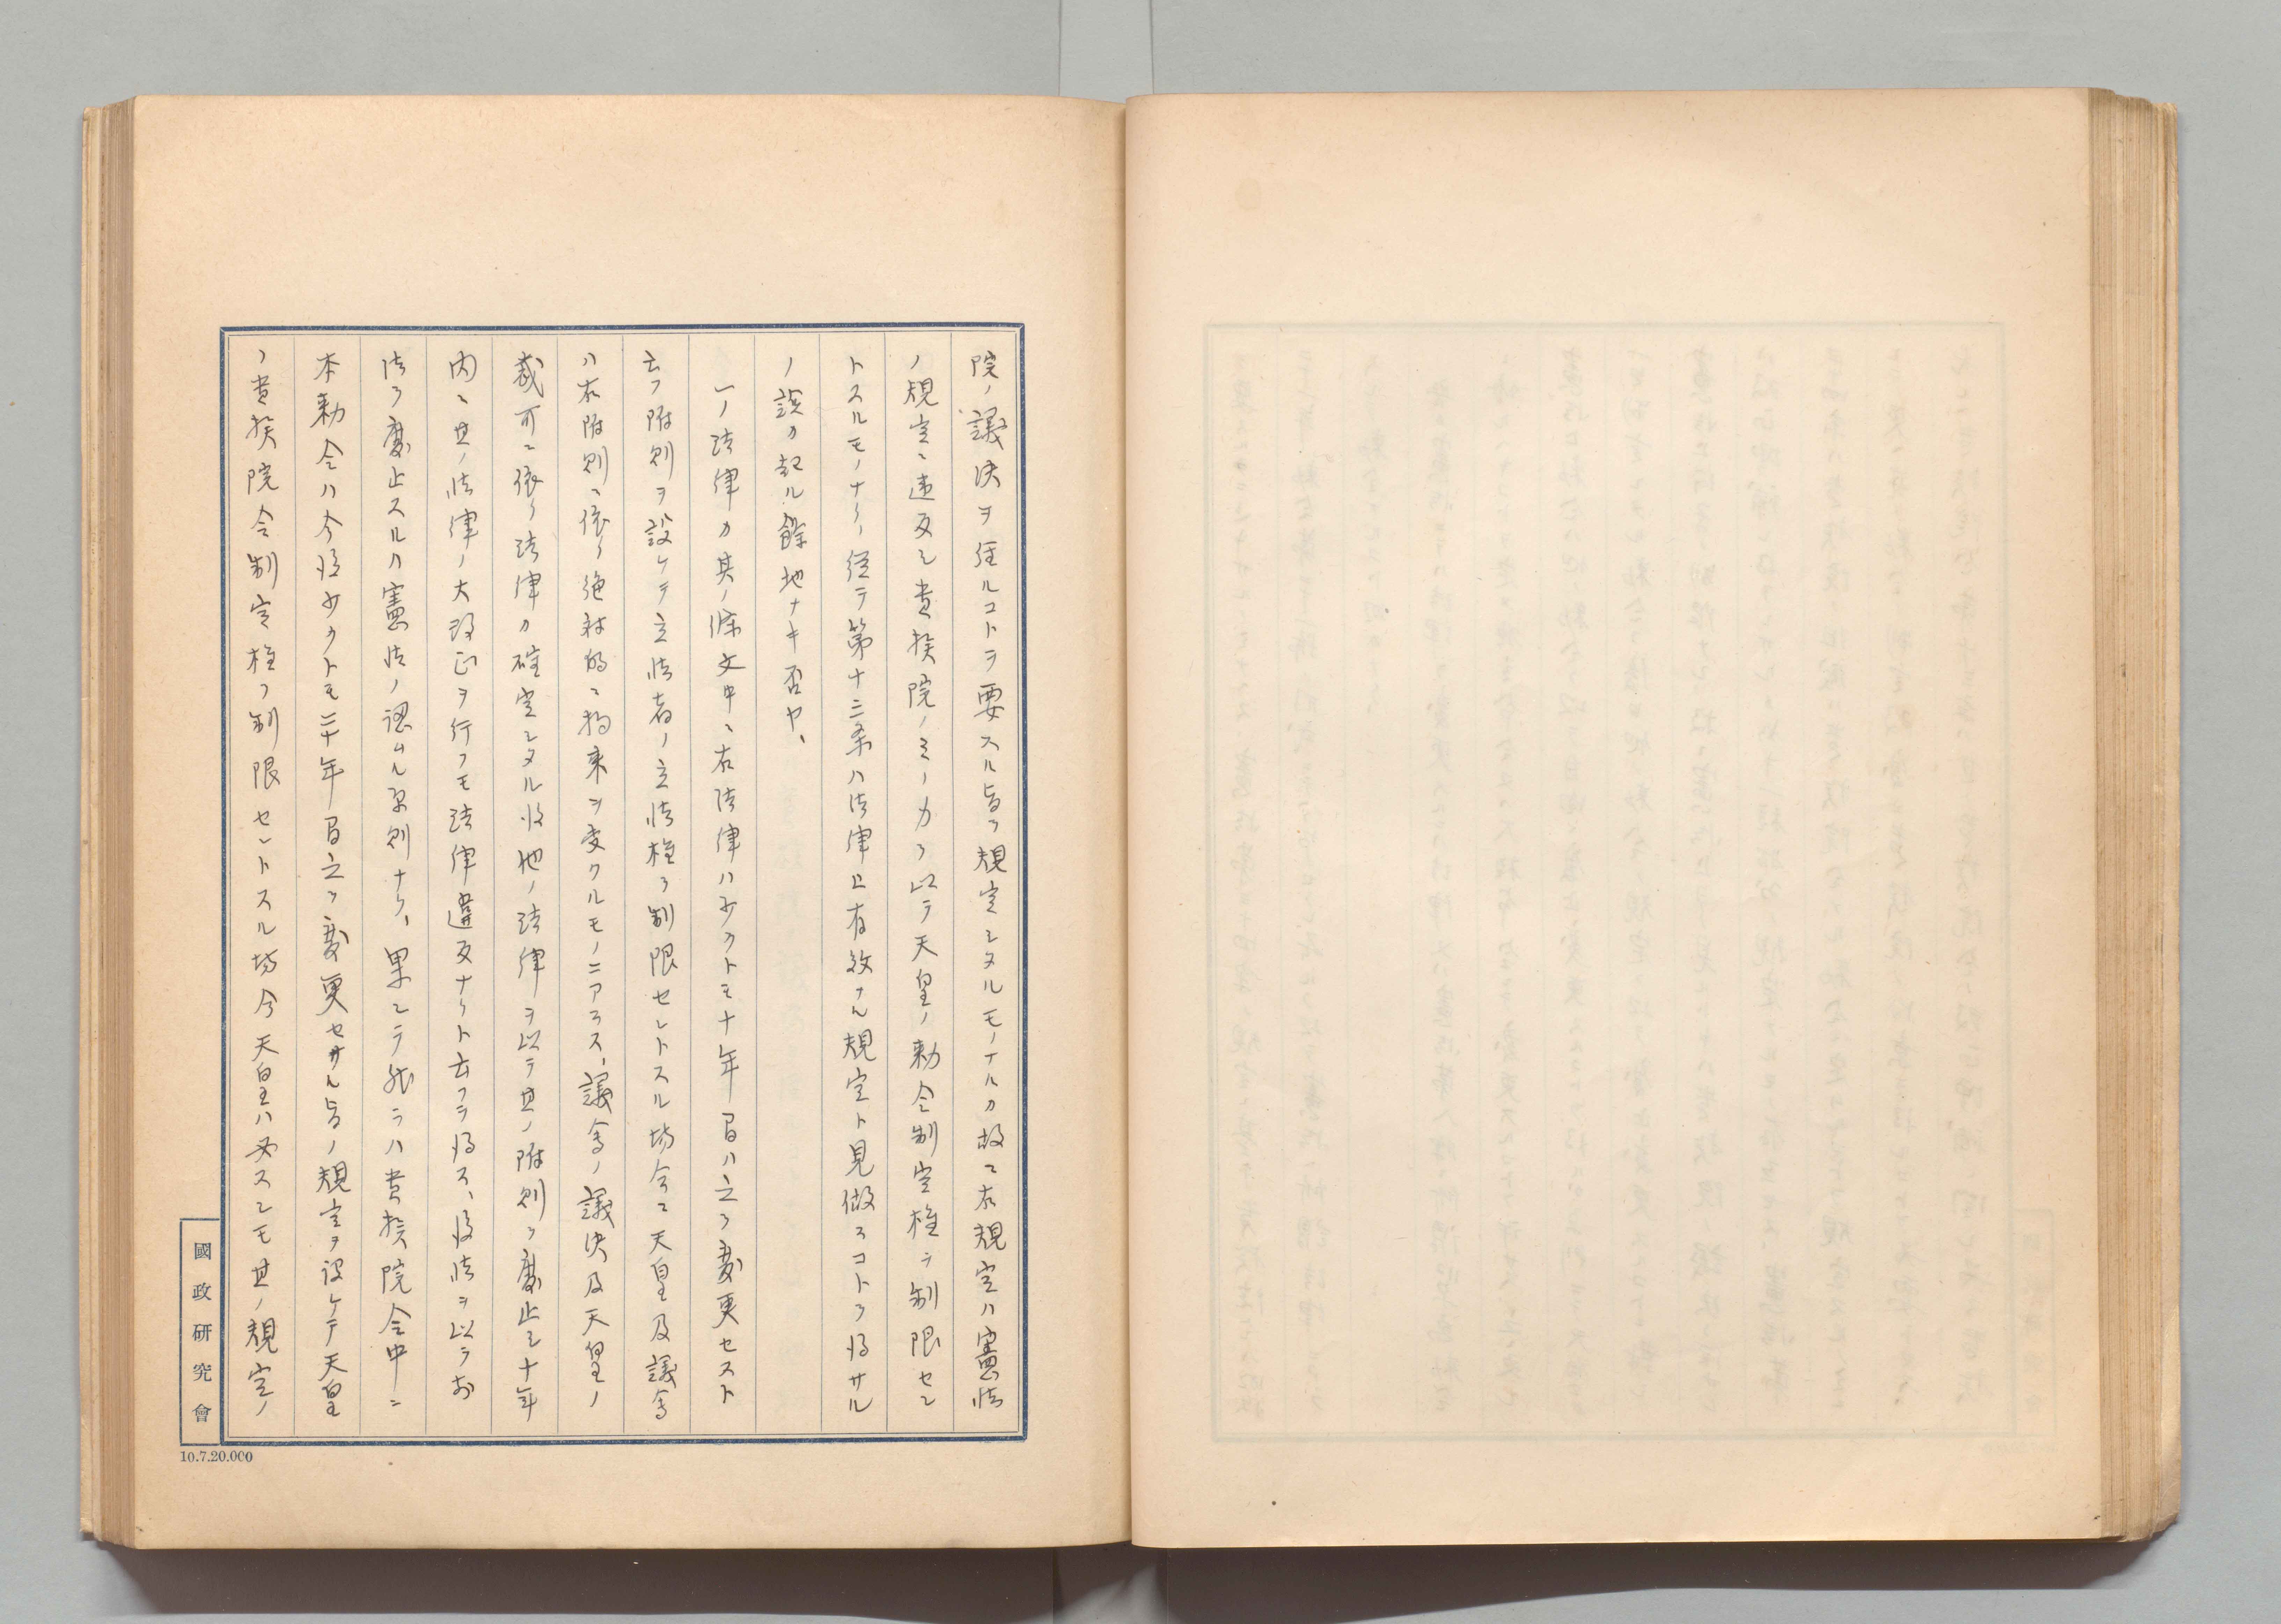 院ノ議決ヲ経ルコトヲ要スル旨ヲ規定シタルモノナルカ故ニ右規定ハ憲法
ノ規定ニ違反シ貴族院ノミノ力ヲ以テ天皇ノ勅令制定権ヲ制限セン
トスルモノナリ、従テ第十三条ハ法律上有效ナル規定ト見做スコトヲ得サル
ノ誤カ起ル餘地ナキ否ヤ、
一ノ法律カ其ノ條文中ニ右法律ハ少クトモ十年間ハ之ヲ変更セスト
云フ附則ヲ設ケテ立法者ノ立法権ヲ制限セントスル場合ニ天皇及議会
ハ右附則ニ依リ絶対的ニ拘束ヲ受クルモノニアラス、議会ノ議決及天皇ノ
裁可ニ依リ法律カ確定シタル後他ノ法律ヲ以テ其ノ附則ヲ廢止シ十年
内ニ其ノ法律ノ大改正ヲ行フモ法律違反ナリト云フヲ得ス、後法ヲ以テ前
法ヲ廢止スルハ憲法ノ認ムル原則ナリ、果シテ然ラハ貴族院令中ニ
本勅令ハ今後少クトモ三十年間之ヲ変更セサル旨ノ規定ヲ設ケテ天皇
ノ貴族院令制定権ヲ制限セントスル場合天皇ハ必スシモ其ノ規定ノ
國政研究會
10.7.20.000